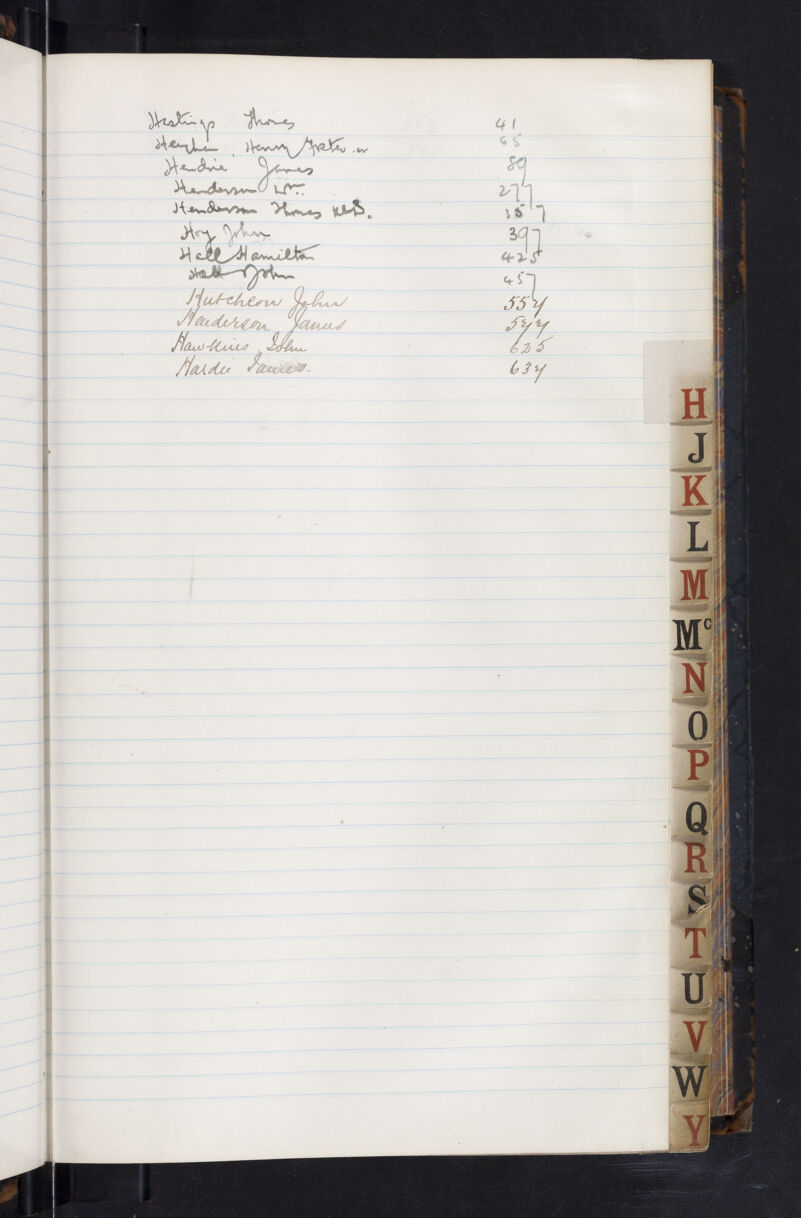 Hastings Thomas 41
Henry 65
Hendrie James 89
Henderson Wm. 277
Henderson Thomas 357
Hoy John 397
Hall Hamilton 425
Hall John 457
Hutcheon John 557
Henderson James 577
Hawkins John 625
Hardie James. 637
H
J
K
L
M
Mc
N
O
P
Q
R
S
T
U
V
W
Y